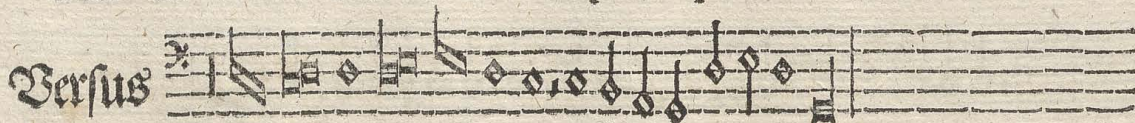 Verſus